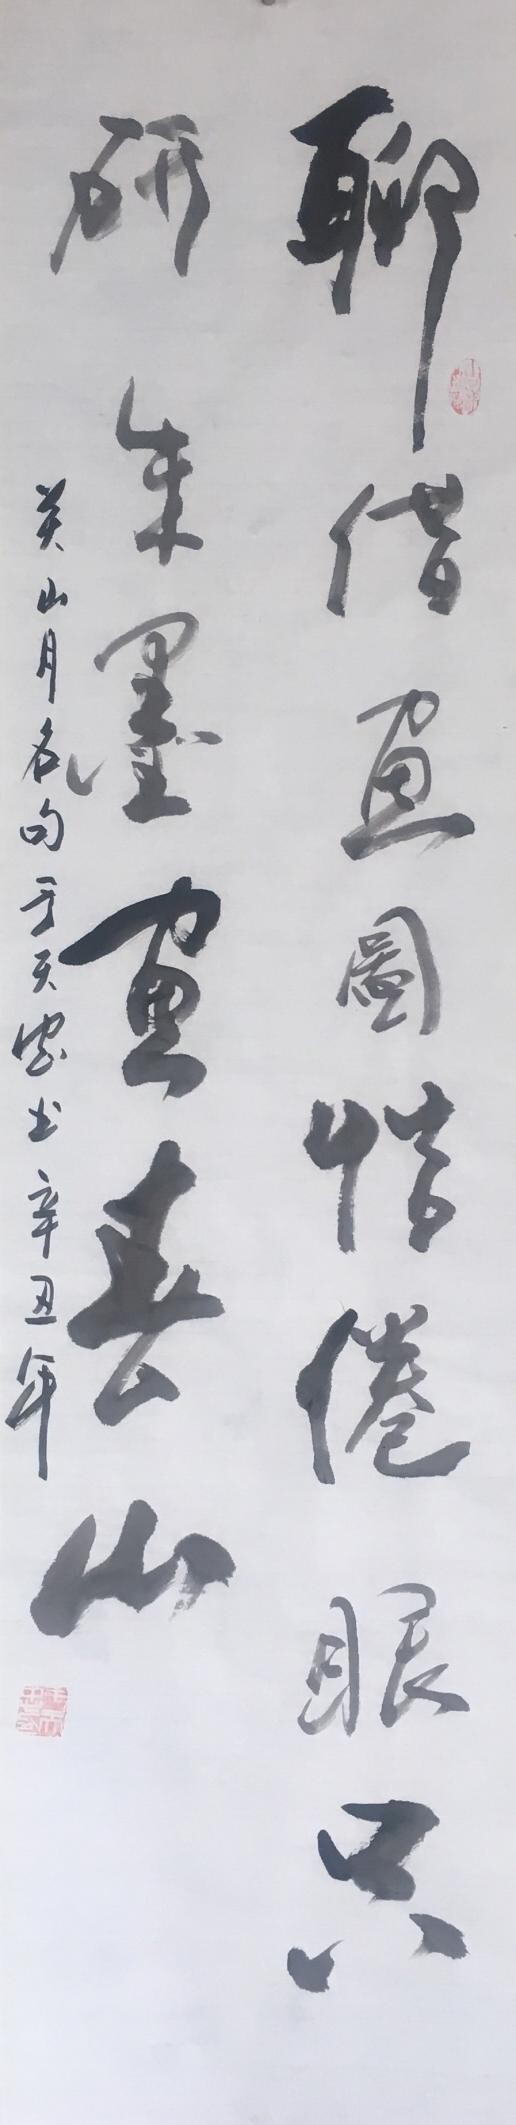 聊借畫圖倦眼只
研朱墨畫春山
关山月名句于天书辛丑年